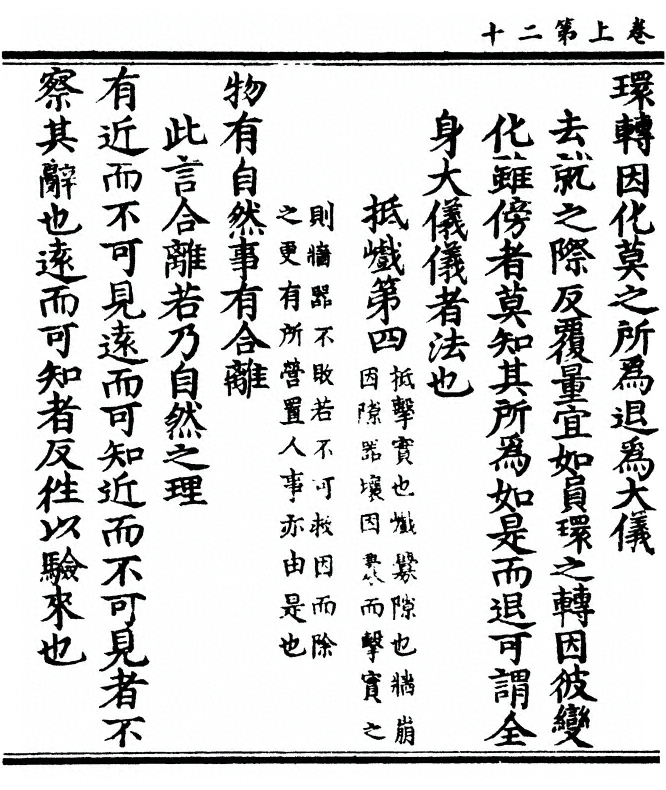 卷上第二十
環轉因化莫之所爲退爲大儀
去就之際反覆量宜如員環之轉因彼變
化雖傍者莫知其所爲如是而退可謂全
身大儀儀者法也
抵巇第四
抵擊實也巇釁隙也牆崩
因隙器壞因釁而擊實之
則牆器不敗若不可救因而除
之更有所營置人事亦由是也
物有自然事有合離
此言合離若乃自然之理
有近而不可見遠而可知近而不可見者不
察其辭也遠而可知者反徃以驗來也